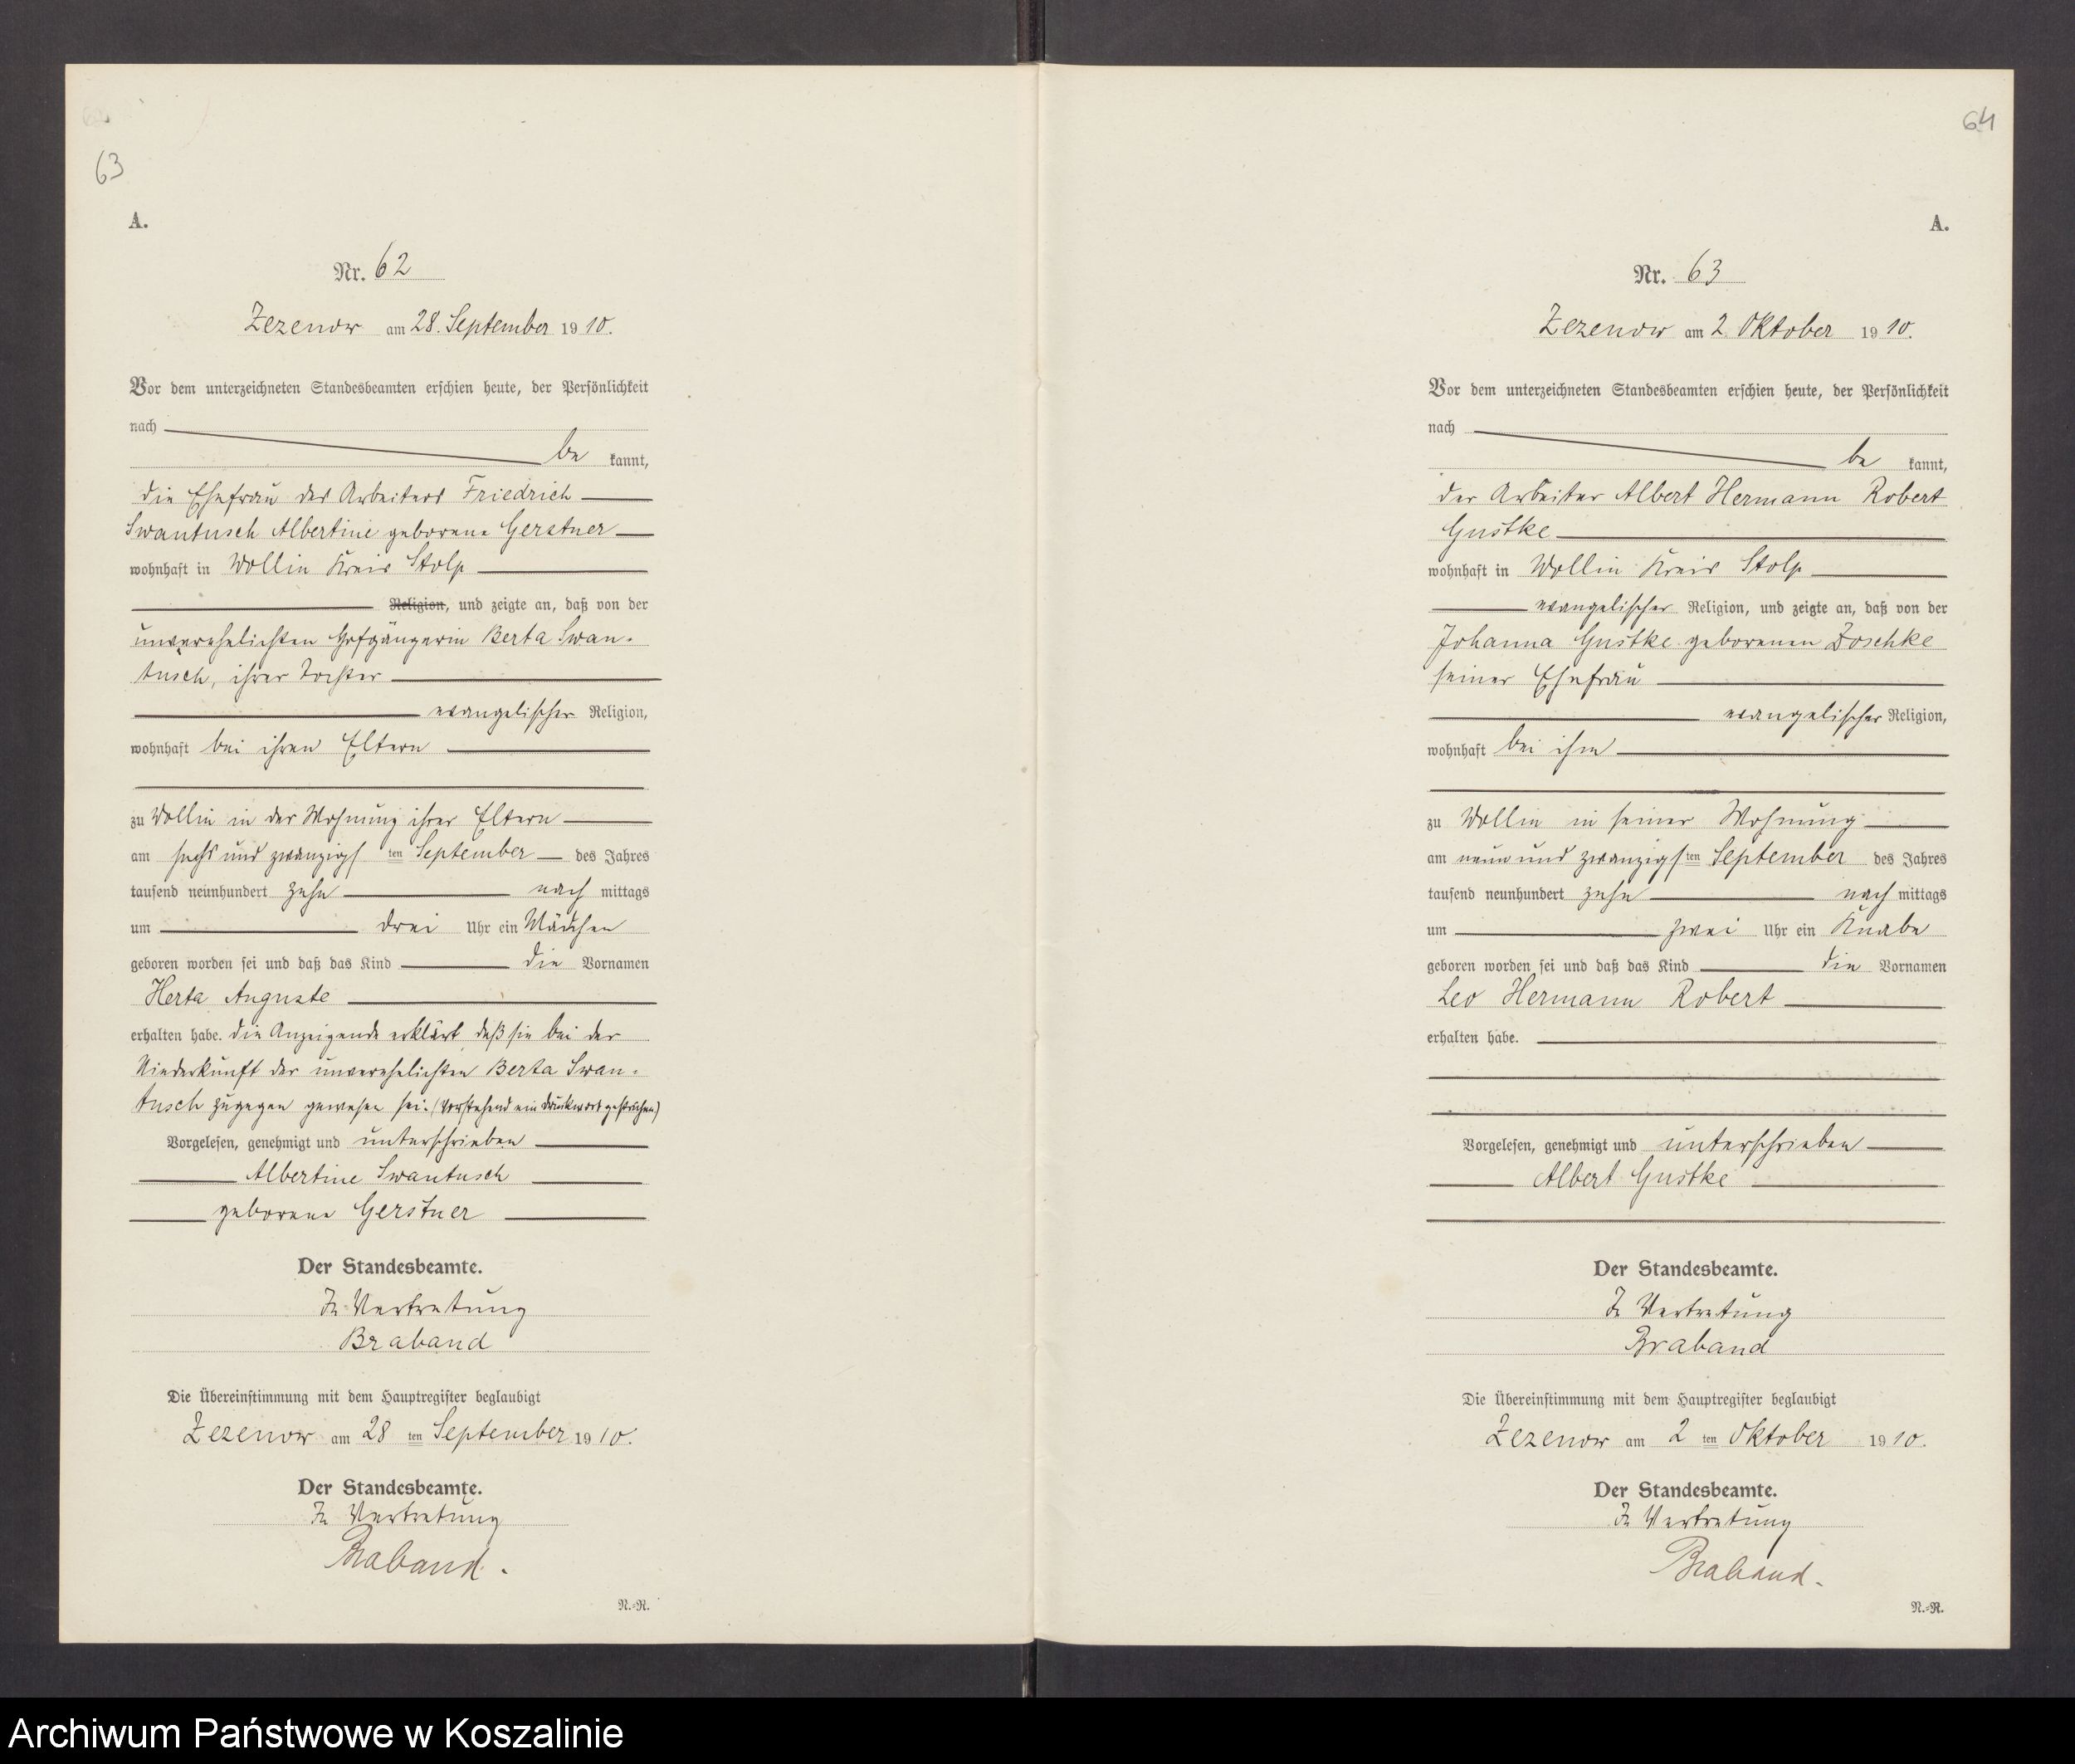 63
A.
Nr. 62
Zezenow am 28. September 1910.
Vor dem unterzeichneten Standesbeamten erschien heute, der Persönlichkeit
nach
be kannt,
die Ehefrau des Arbeiters Friedrich
Swantusch Albertine geborene Gerstner
wohnhaft in Wollin Kreis Stolp
Religion, und zeigte an, daß von der
unverehelichten Hofgängerin Berta Swan-
tusch, ihrer Tochter
evangelischer Religion,
wohnhaft bei ihren Eltern
zu Wollin in der Wohnung ihrer Eltern
am sechs und zwanzigsten September des Jahres
tausend neunhundert zehn nach mittags
um drei Uhr ein Mädchen
geboren worden sei und daß das Kind die Vornamen
Herta Auguste
erhalten habe. die Anzeigende erklärt, daß sie bei der
Niederkunft der unverehelichten Berta Swan-
tusch zugegen gewesen sei. (Vorstehend ein Druckwort gestrichen)
Vorgelesen, genehmigt und unterschrieben
Albertine Swantusch
geborene Gerstner
Der Standesbeamte.
In Vertretung
Braband
Die Übereinstimmung mit dem Hauptregister beglaubigt
Zezenow am 28 ten September 1910.
Der Standesbeamte.
In Vertretung
Braband.
N.-R.
64
A.
Nr. 63
Zezenow am 2. Oktober 1910.
Vor dem unterzeichneten Standesbeamten erschien heute, der Persönlichkeit
nach
be kannt,
der Arbeiter Albert Hermann Robert
Gustke
wohnhaft in Wollin Kreis Stolp
evangelischer Religion, und zeigte an, daß von der
Johanna Gustke geborenen Zoschke
seiner Ehefrau
evangelischer Religion,
wohnhaft bei ihm
zu Wollin in seiner Wohnung
am neun und zwanzigsten September des Jahres
tausend neunhundert zehn nach mittags
um zwei Uhr ein Knabe
geboren worden sei und daß das Kind die Vornamen
Leo Hermann Robert
erhalten habe.
Vorgelesen, genehmigt und unterschrieben
Albert Gustke
Der Standesbeamte.
In Vertretung
Braband
Die Übereinstimmung mit dem Hauptregister beglaubigt
Zezenow am 2 ten Oktober 1910.
Der Standesbeamte.
In Vertretung
Braband.
N.-R.
Archiwum Państwowe w Koszalinie